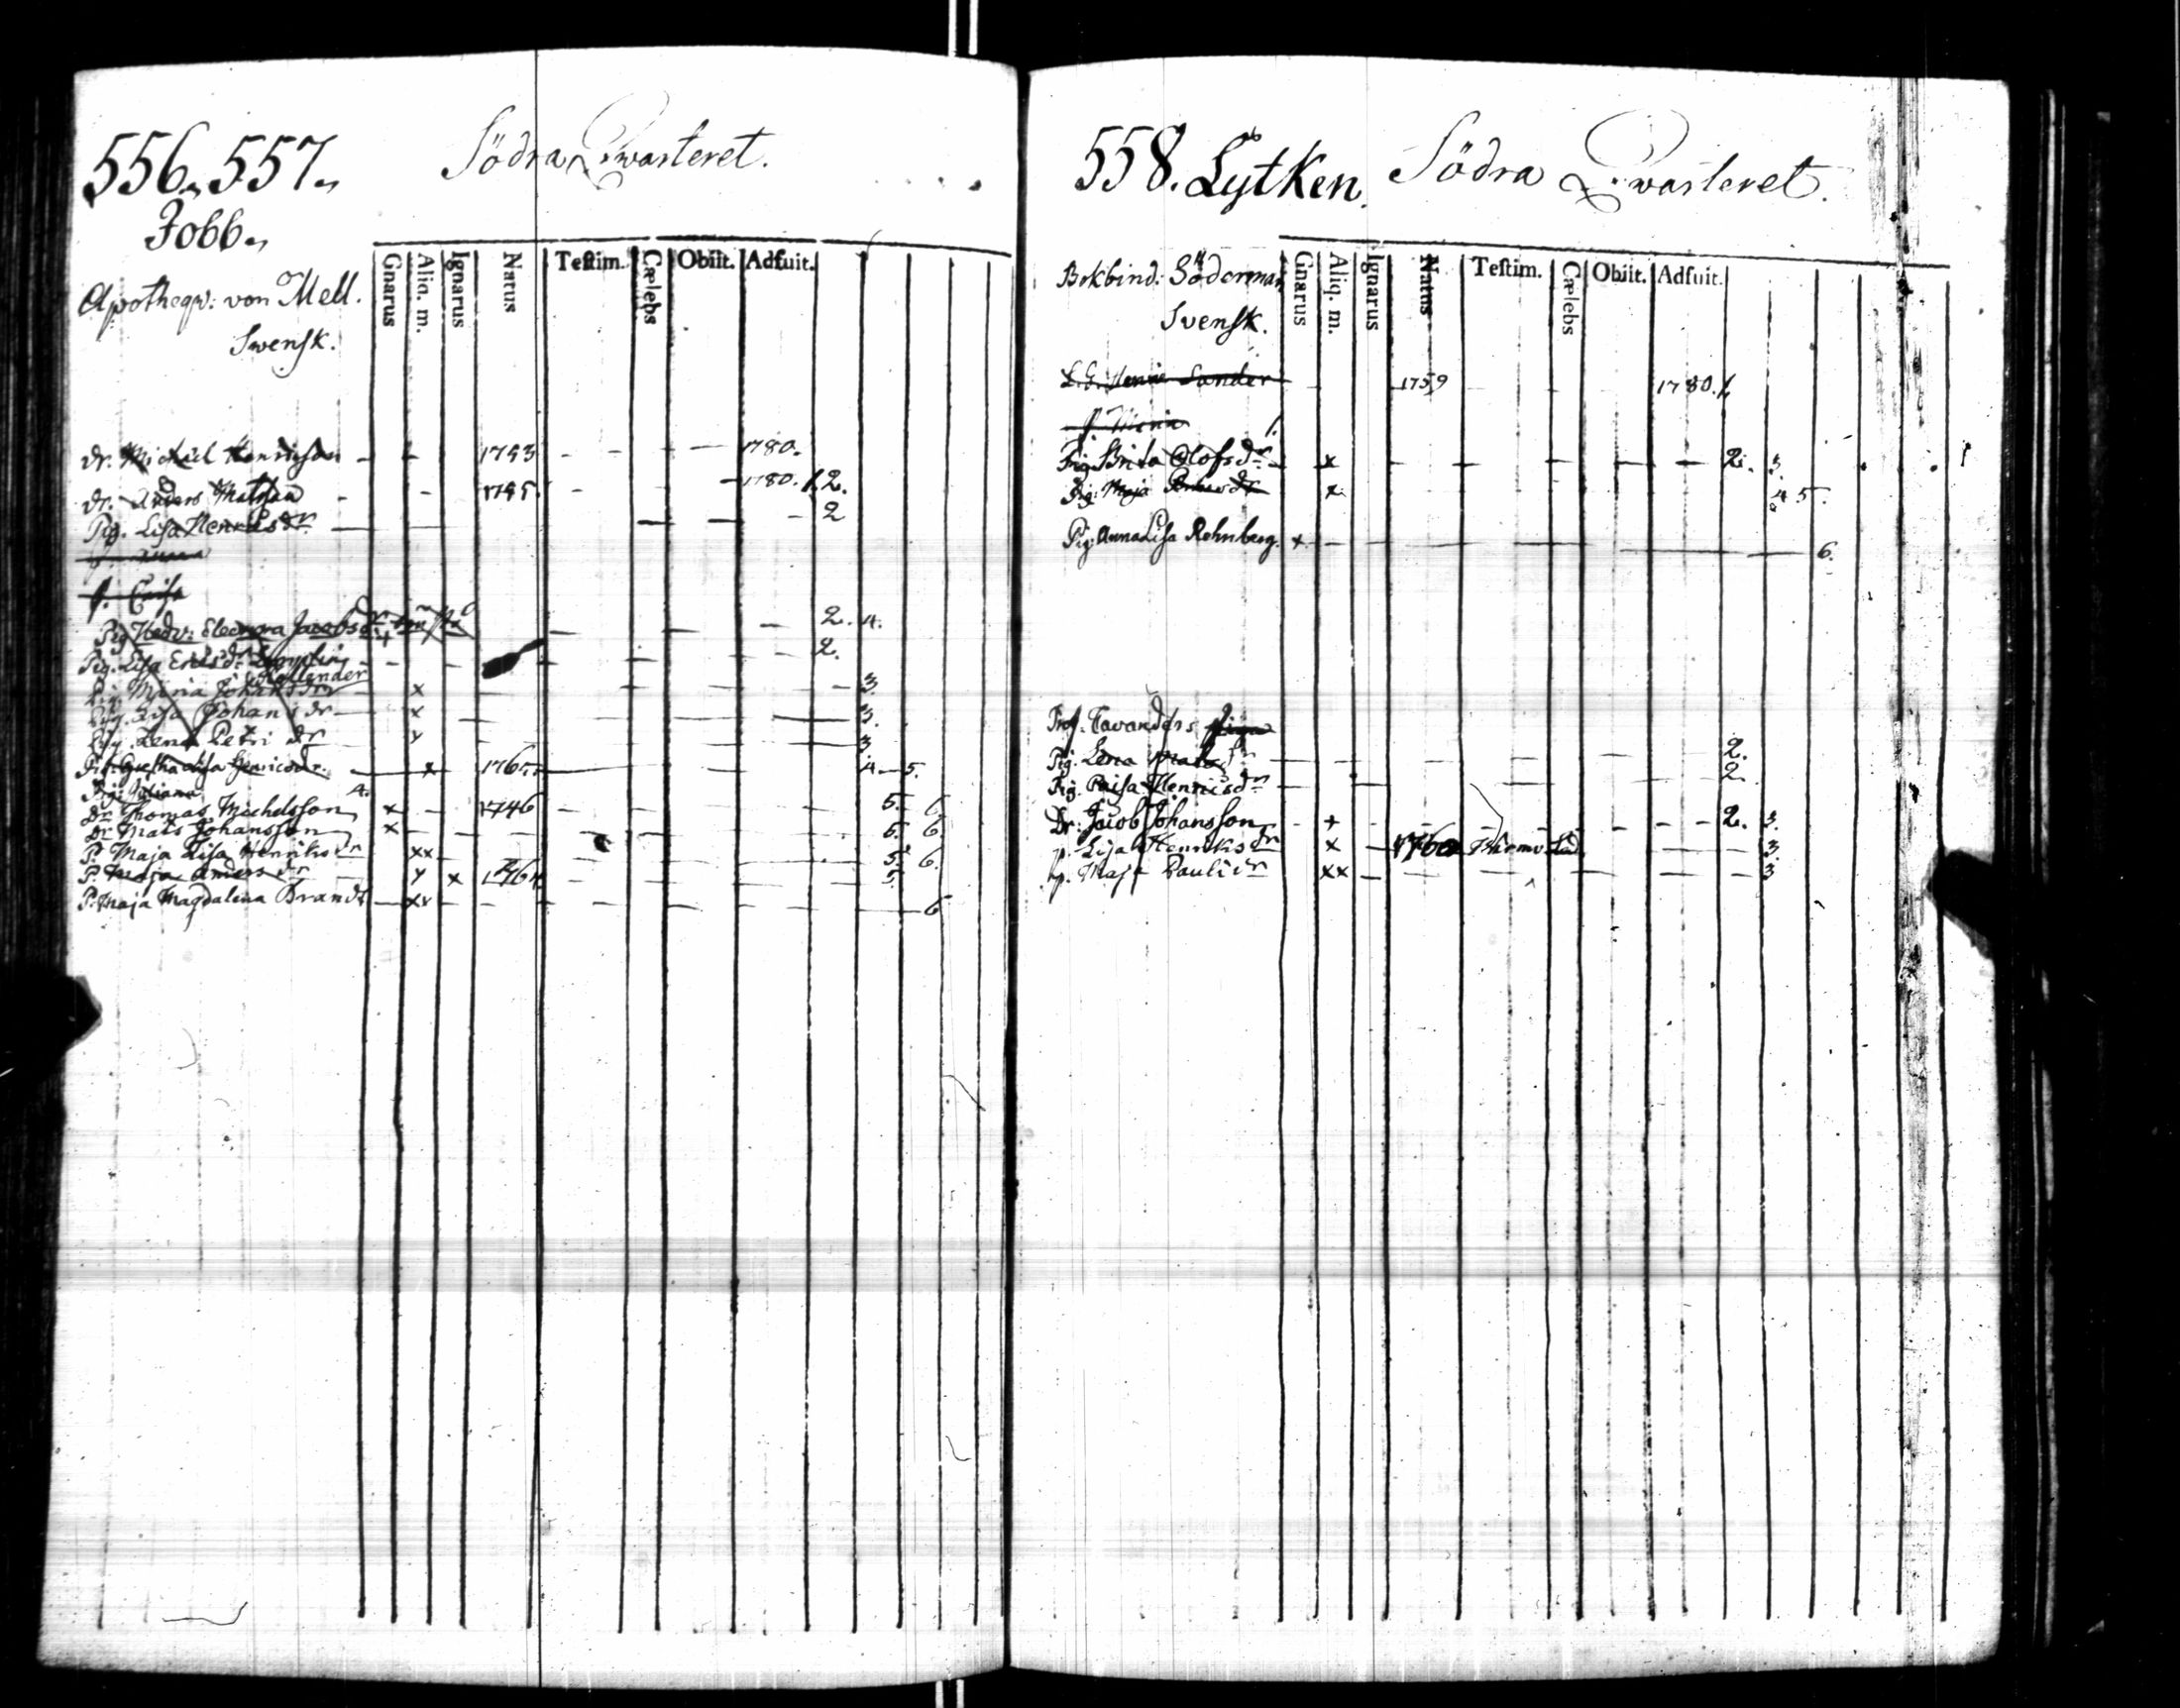 556. 557. Södra Qvarteret.
Jobb.
Gnarus Aliq. m. Ignarus Natus Testim. Cælebs Obiit. Adfuit.
Apotheqv: von Mell.
Swensk.
Dr. Michel Henricson 1753 1780.
Dr. Anders Matsson 1780. 1. 2.
Pig. Lisa Henricsdr 2
p. Caisa
Pig Hedv: Eleonora Jacobsdr 2. 4.
Pig. Lisa Ericsdr 2.
Pig. Maria Johansdr x 3.
Pig. Lisa Johansdr x 3.
Pig. Lena Petri dr 3
Pig. Gretha Lisa Henricsdr. x 1765 4 5.
Pig. Juliana 4.
Dr Thomas Michelsson x 1746 5. 6.
Dr Mats Johansson x 6. 6.
P. Maja Lisa Henriksdr xx 5. 6.
P. Maja Andersdr x 1764 5.
P. Maja Magdalena Brandt xx 6
558. Lytken. Södra Qvarteret.
Gnarus Aliq. m. Ignarus Natus Testim. Cælebs Obiit. Adfuit.
Bokbind: Söderman
Svensk.
Sander 1759 1780. 1.
Pig Brita Olofsdr x 2. 3.
Pig. Maja x 4 5.
Pig. Anna Lisa Rehnberg. x 6.
Prof. Tavanders
Pig. Lena 2.
Pig. Caisa Henricsdr 2
Dr. Jacob Johansson x 2. 3.
p. Lisa Henriksdr x 1760 3.
p. Maja Pauli dr xx 3